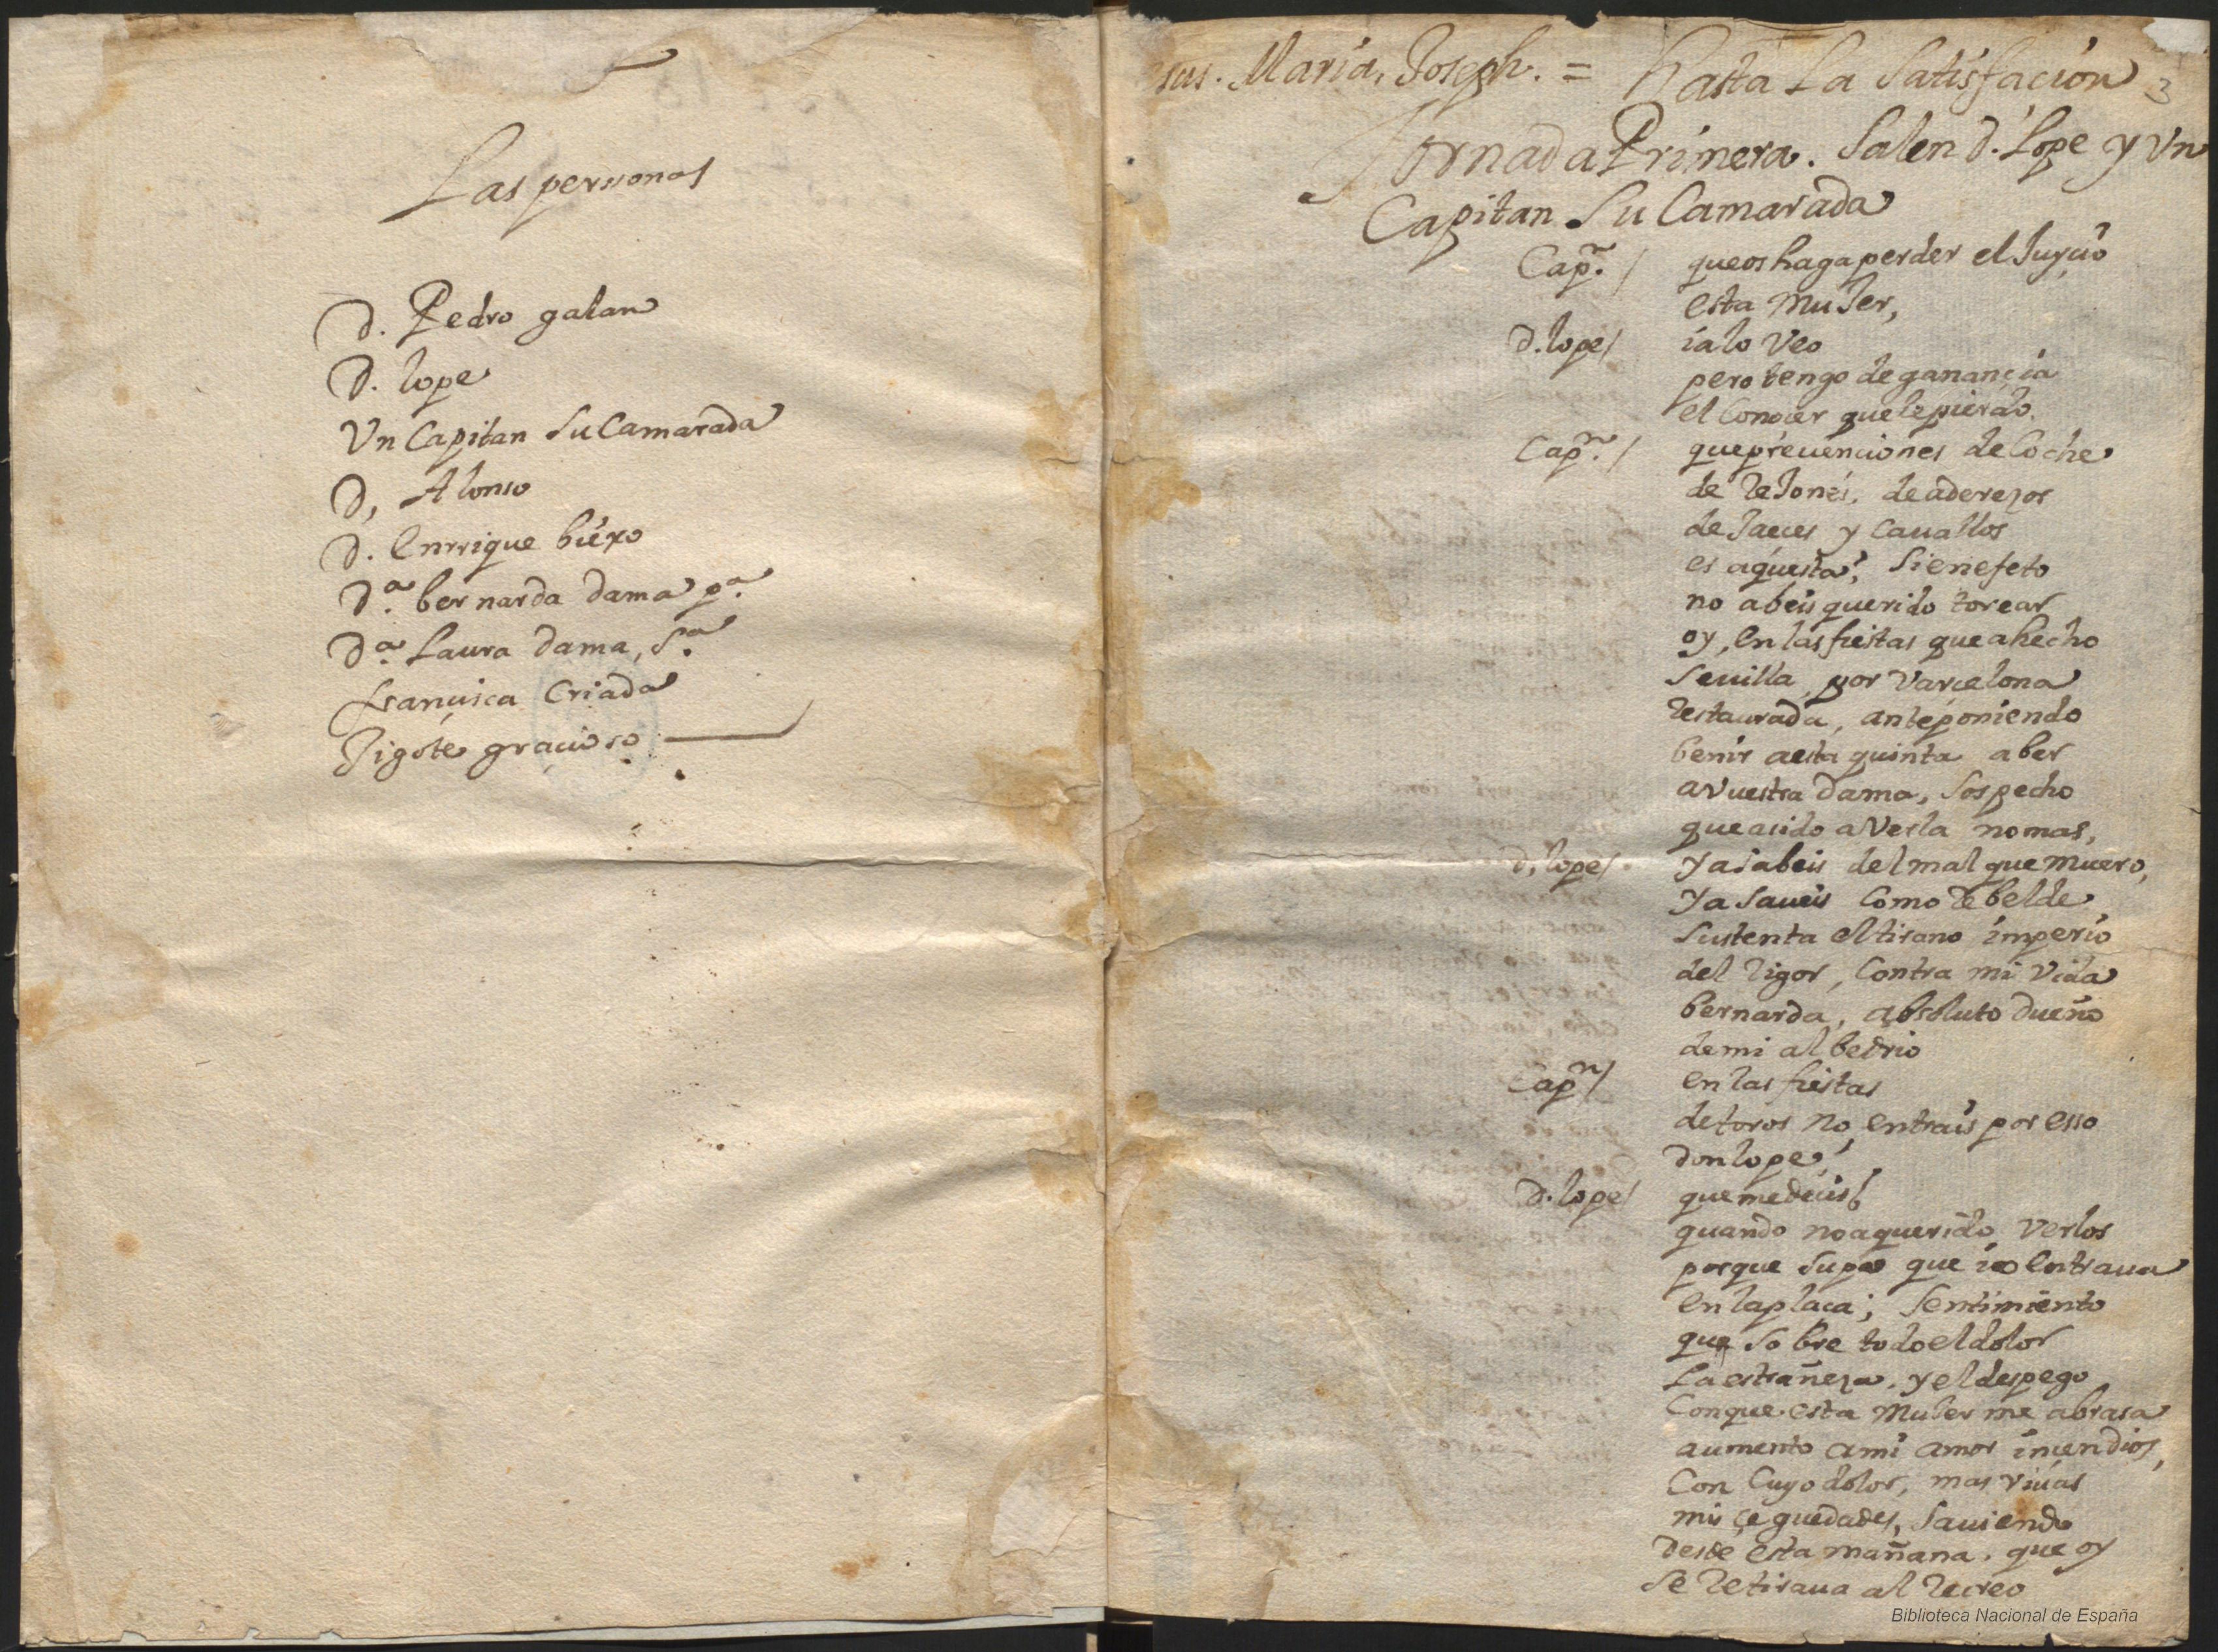 Las personas
D. Pedro galan
D. lope
Vn Capitan su Camarada
D, Alonso
D. Enrrique biexo
D.ª bernarda dama p.ª
D.ª Laura dama, S.ª
françisca Criada
Jigote graçioso
sus. Maria, Joseph. = hasta La Satisfaçion 3
Jornada Primera. Salen d. Lope y Vn
Capitan Su Camarada
Cap.n / que os haga perder el Juyçio
esta muJer,
d. lope / ia lo Veo
pero tengo de ganançia
el Conoçer que le pierdo.
Cap.n / que preuenciones de Coche
de reJones, de adereços
de Jaeces y Cauallos
es aquesta, Si en efeto
no abeis querido torear
oy, en las fiestas que a hecho
Seuilla, por Varcelona
restaurada, anteponiendo
benir a esta quinta a ber
a Vuestra dama, Sospecho
que a sido a Verla no mas,
d, lope / ya sabeis del mal que muero,
ya Saueis Como rebelde
Sustenta el tirano imperio
del rigor, Contra mi Vida
bernarda, absoluto dueño
de mi albedrio
Cap.n / en las fiestas
de toros no, entrais por esso
don lope,
d. lope / que me deçis
quando no a querido Verlos
porque Supo que io entraua
en la plaça; Sentimiento
que Sobre todo el dolor
La estrañeça. y el despego
Con que esta muJer me abrasa
aumento a mi amor inçendios,
Con Cuyo dolor, mas viuas
mis çeguedades, Sauiendo
desde esta mañana. que oy
se retiraua al recreo
Biblioteca Nacional de España